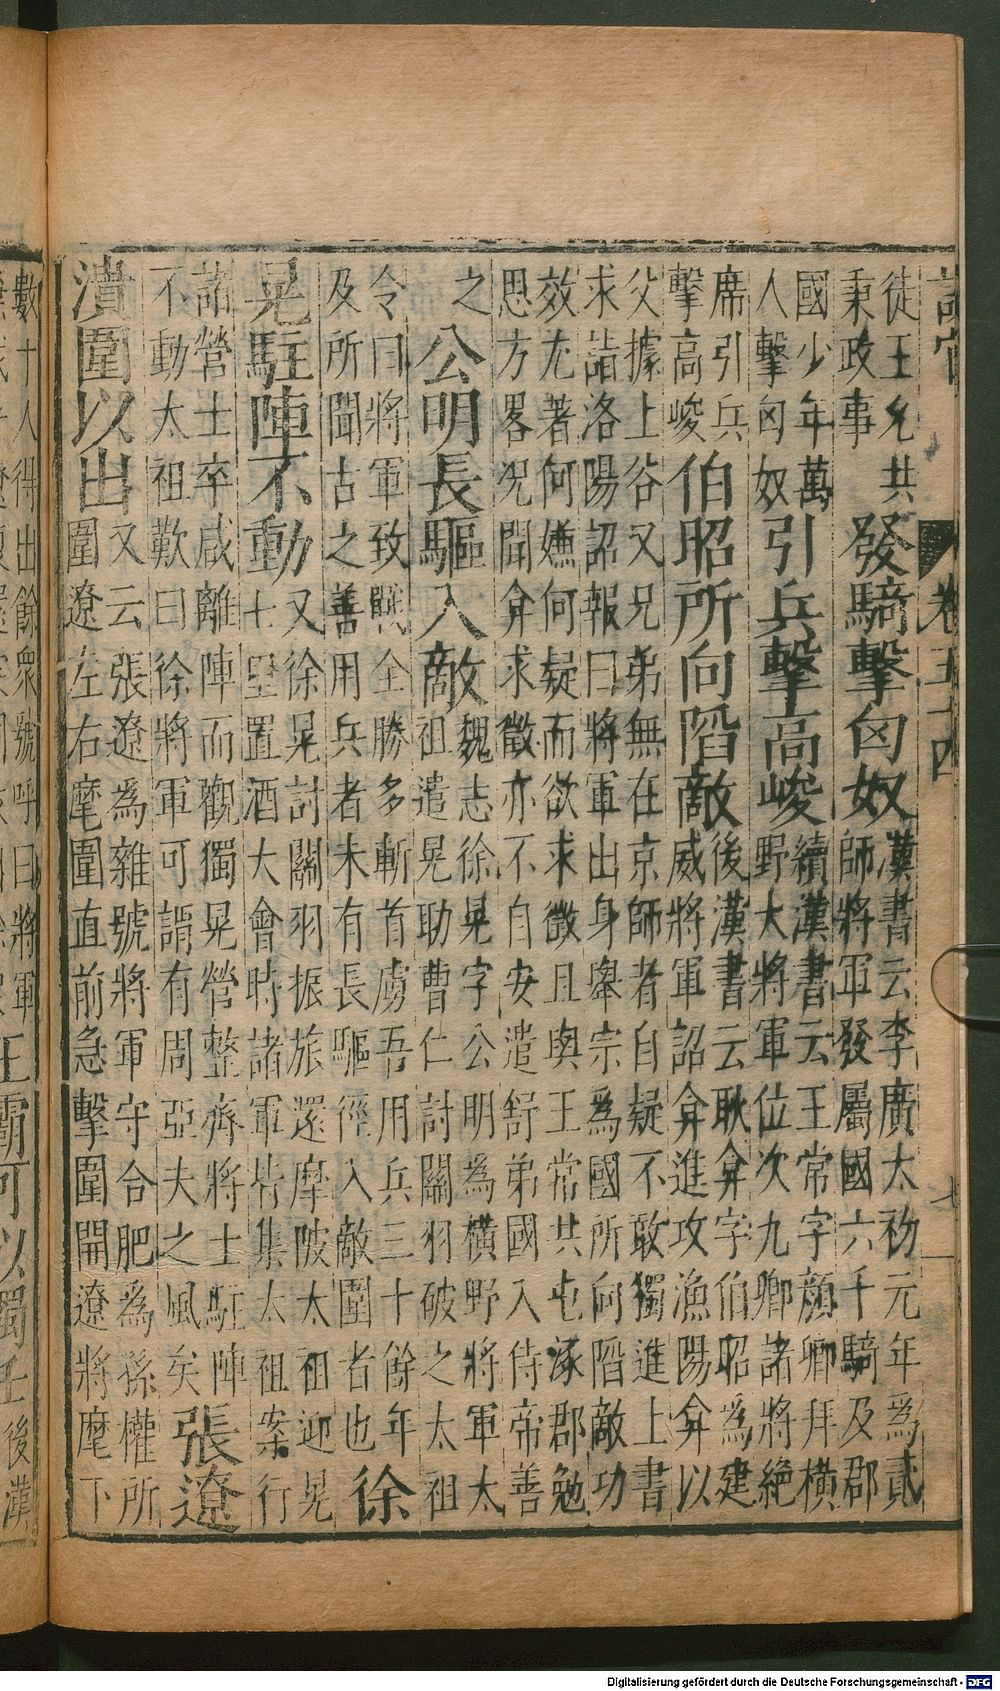 卷五十四
徒王允共
秉政事
發騎擊匈奴
漢書云李廣太初元年為貳
師將軍發屬國六千騎及郡
國少年萬
人擊匈奴
引兵擊高峻
續漢書云王常字顏卿拜橫
野大將軍位次九卿諸將絶
席引兵
擊高峻
伯昭所向陷敵
後漢書云耿弇字伯昭為建
威將軍詔弇進攻漁陽弇以
父據上谷又兄弟無在京師者自疑不敢獨進上書
求詣洛陽詔報曰將軍出身舉宗為國所向陷敵功
效尤著何嫌何疑而欲求徵且與王常共屯涿郡勉
思方畧况聞弇求徵亦不自安遣舒弟國入侍帝善
之
公明長驅入敵
魏志徐晃字公明為橫野將軍太
祖遣晃助曹仁討關羽破之太祖
令曰將軍致戰全勝多斬首虜吾用兵三十餘年
及所聞古之善用兵者未有長驅徑入敵圍者也
徐
晃駐陣不動
又徐晃討關羽振旅還摩陂太祖迎晃
七里置酒大會時諸軍皆集太祖案行
諸營士卒咸離陣而觀獨晃營整齊將士駐陣
不動太祖歎曰徐將軍可謂有周亞夫之風矣
張遼
潰圍以出
又云張遼為雜號將軍守合肥為孫權所
圍遼左右麾圍直前急擊圍開遼將麾下
數十人得出餘衆號呼曰將軍
王霸可以獨任
後漢
Digitalisierung gefördert durch die Deutsche Forschungsgemeinschaft - DFG